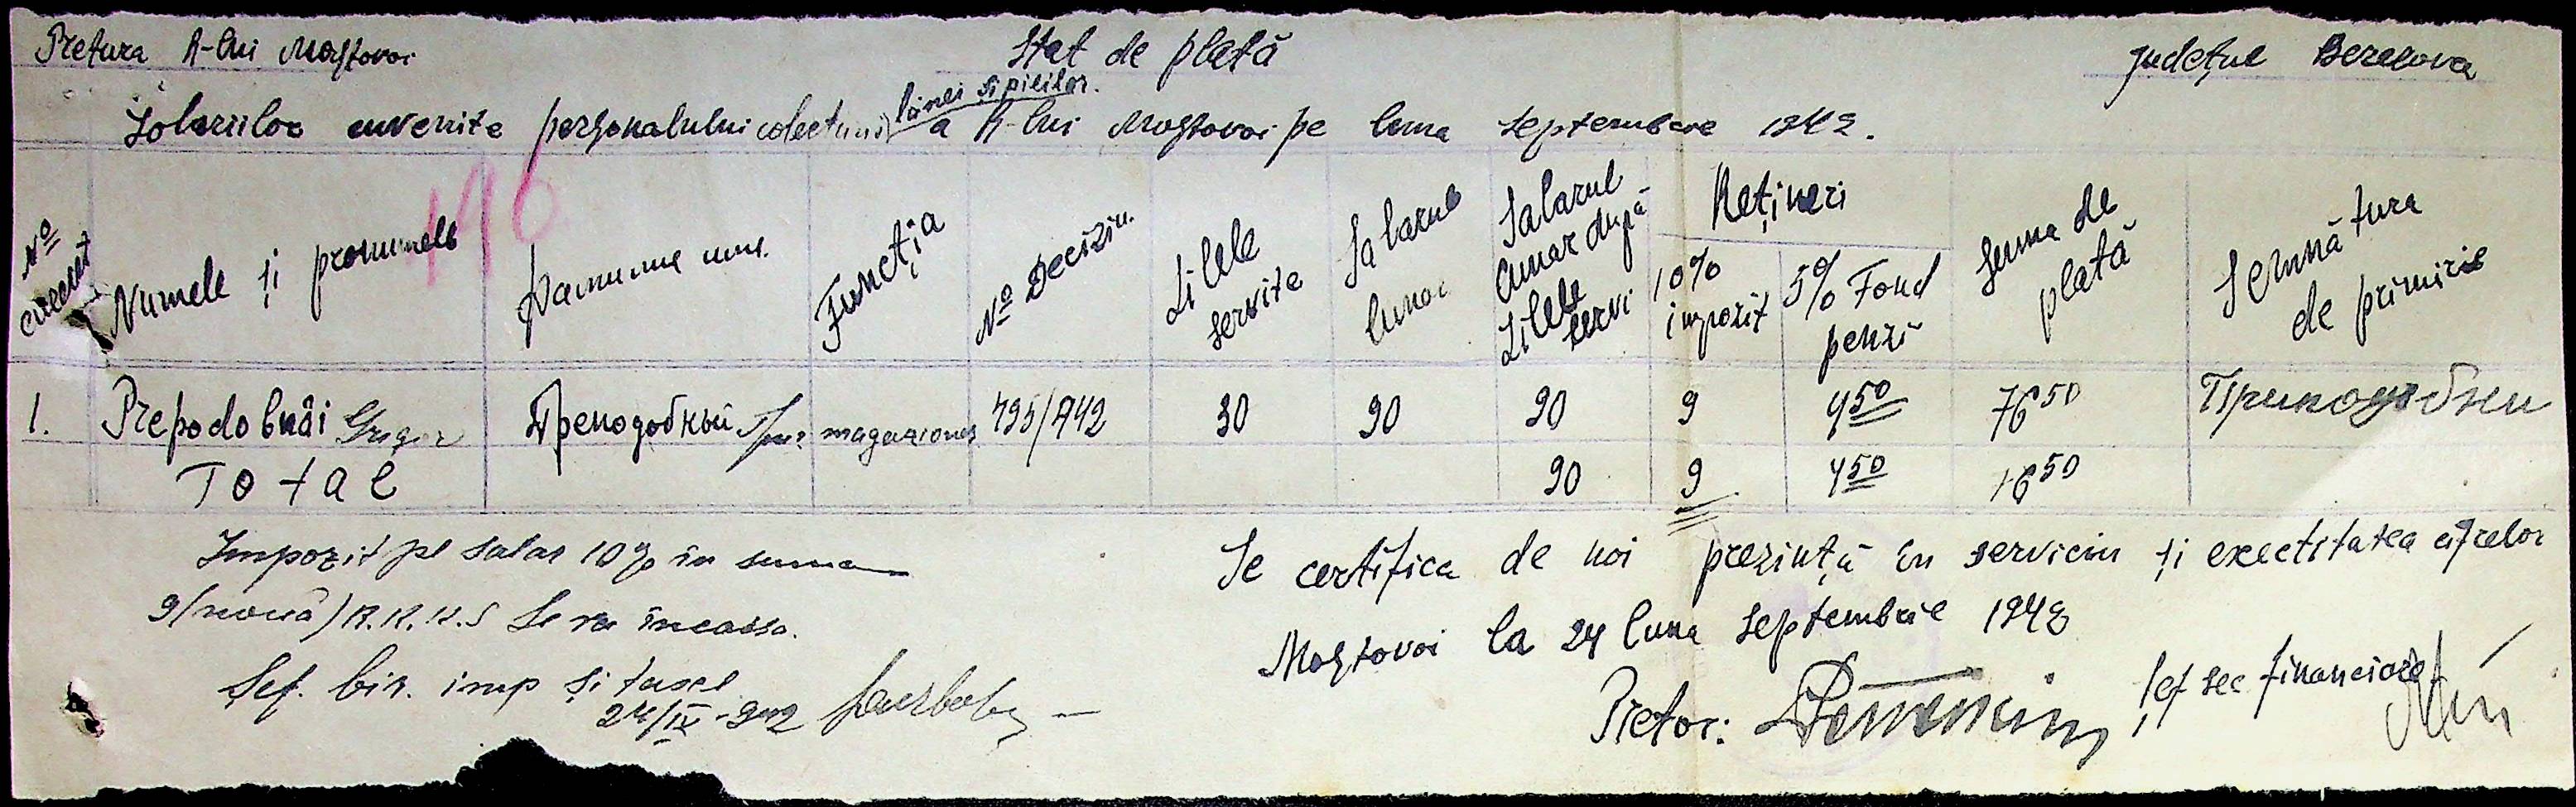 Pretura R-lui Mostovoi
Stat de plată
județul Berezova
lânei și pieilor.
Solariilor cuvenite personalului colectarii a R-lui Mostovoi pe luna Septembrie 1942.
146
No curent
Numele și pronumele
Functia
No Deciziei
Zilele servite
Salarul lunar
Salarul lunar după zilele servi
Rețineri
10% impozit
5% Fond penzi
Suma de plată
Semnătura de primire
1. Prepodobnâi Grigor Преподобный магazioner 795/942 30 90 90 9 4 50 76 50 Приподобни
Total 90 9 4 50 76 50
Impozit pe salar 10% în suma
9 (nouă) R.K.K.S Se va încassa.
Șef. bir. imp și taxel
24/IX-942
Se certifica de noi prezință în serviciu și exectitatea cifrelor
Mostovoi la 24 luna Septembrie 1942
Pretor:
Șef sec financiare